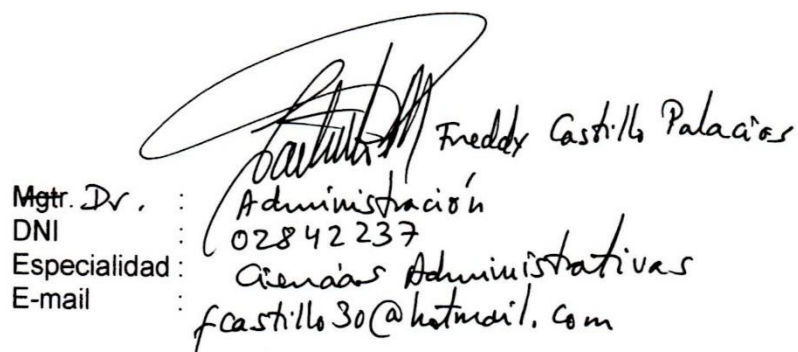 Freddy Castillo Palacios
Mgtr. Dr. : Administración
DNI : 02842237
Especialidad : Ciencias Administrativas
E-mail : fcastillo30@hotmail.com